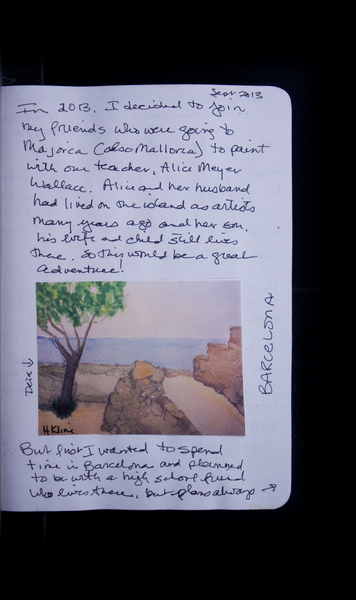 Sept 2013
In 2013. I decided to join
my friends who were going to
Majorca (also Mallorca) to paint
with our teacher, Alice Meyer
Wallace. Alice and her husband
had lived on the island as artists
many years ago and her son,
his wife and child still lives
there. So this would be a great
adventure!
BARCELONA
H Kline
But first I wanted to spend
time in Barcelona and planned
to be with a high school friend
who lives there, but plans always →